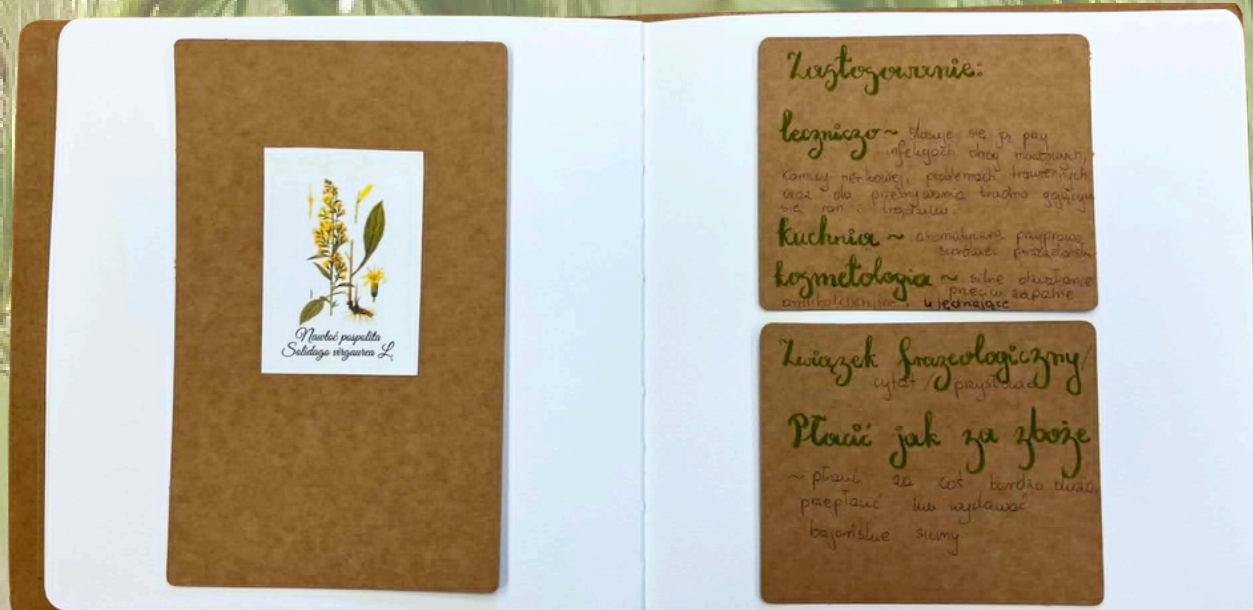 Nawłoć pospolita
Solidago virgaurea L.
Zastosowanie:
leczniczo ~ stosuje się ją przy
infekcjach dróg moczowych,
kamicy nerkowej, problemach trawiennych
oraz do przemywania trudno gojących
się ran i trądziku.
kuchnia ~ aromatyczna przyprawa,
surowiec
kozmetologia ~ silne działanie
przeciw zapalne
antybakteryjne, ujędrniające
Związek frazeologiczny/
cytat / przysłowie
Płacić jak za zboże
~ płacić za coś bardzo dużo,
przepłacić lub wydawać
bajońskie sumy